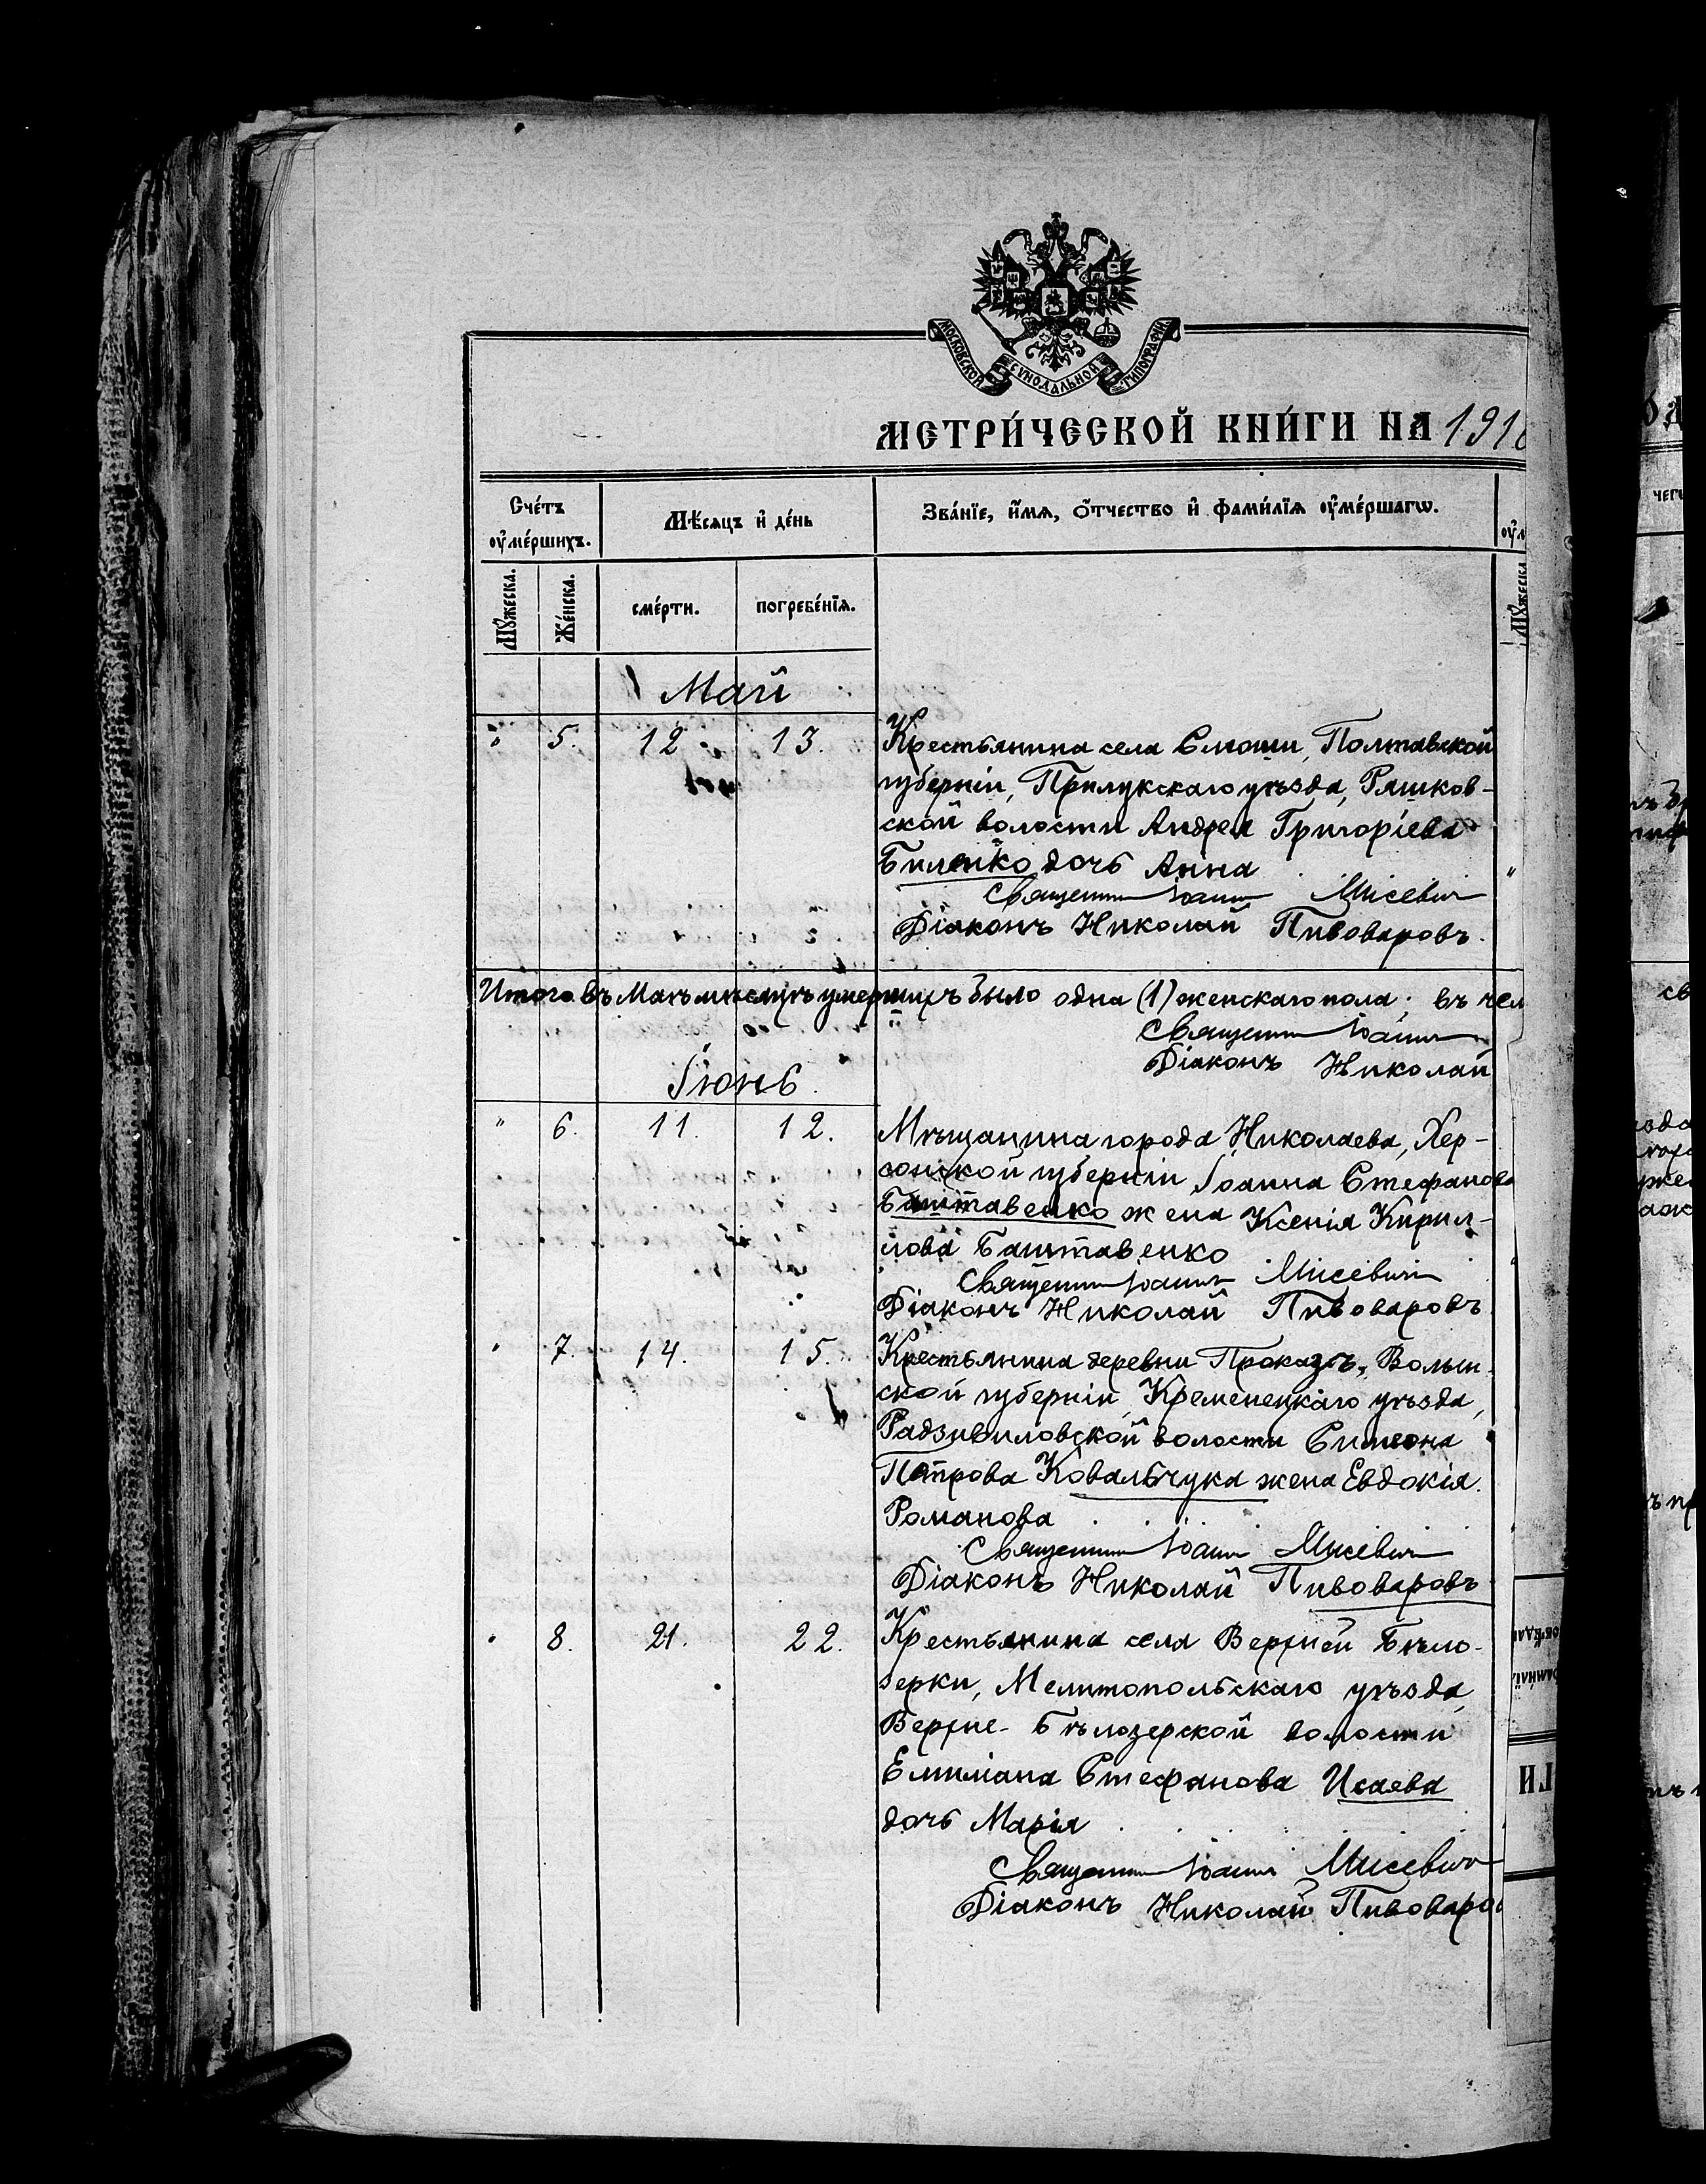 МОСКОВСКОЙ СУНОДАЛЬНОЙ ТИПОГРАФІИ
МЕТРИ́ЧЕСКОЙ КНИ́ГИ НА 191
Сче́тъ ᲂу҆ме́ршихъ.
Мѣ́сяцъ и҆ де́нь
Зва́нїе, и҆́мѧ, ѻ҆́тчество и҆ фами́лїѧ ᲂу҆ме́ршагѡ.
Мꙋ́жеска.
Же́нска.
сме́рти.
погребе́нїѧ.
Мꙋ́жеска
Май
" 5. 12 13. Крестьянина села Слюши, Полтавской
губерніи, Прилукскаго уѣзда, Рашков-
ской волости Андрея Григоріева
Биленко дочь Анна
Священникъ Іоаннъ Мисевичъ
Діаконъ Николай Пивоваровъ.
Итого въ Маѣ мѣсяцѣ умершихъ было одна (1) женскаго пола; въ
Священникъ Іоаннъ
Діаконъ Николай
Іюнь.
" 6. 11. 12. Мѣщанина города Николаева, Хер-
сонской губерніи Іоанна Стефанова
Баштавенко жена Ксенія Кирил-
лова Баштавенко
Священникъ Іоаннъ Мисевичъ
Діаконъ Николай Пивоваровъ
" 7. 14. 15. Крестьянина деревни Проказъ, Волын-
ской губерніи, Кременецкаго уѣзда,
Радзивиловской волости Симеона
Петрова Ковальчука жена Евдокія
Романова
Священникъ Іоаннъ Мисевичъ
Діаконъ Николай Пивоваровъ
" 8. 21. 22. Крестьянина села Верхней Бѣло-
зерки, Мелитопольскаго уѣзда,
Верхне-Бѣлозерской волости
Емиліана Стефанова Исаева
дочь Марія
Священникъ Іоаннъ Мисевичъ
Діаконъ Николай Пивоваро